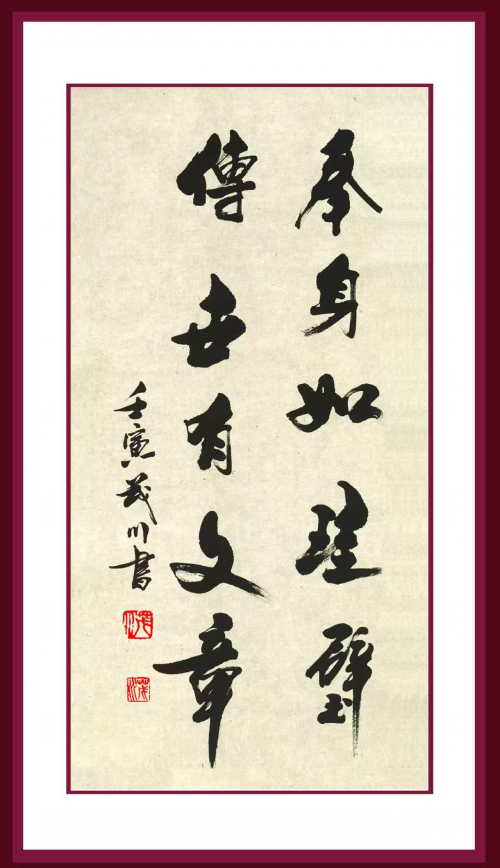 奉身如珪璧
傳世有文章
壬寅茂川書